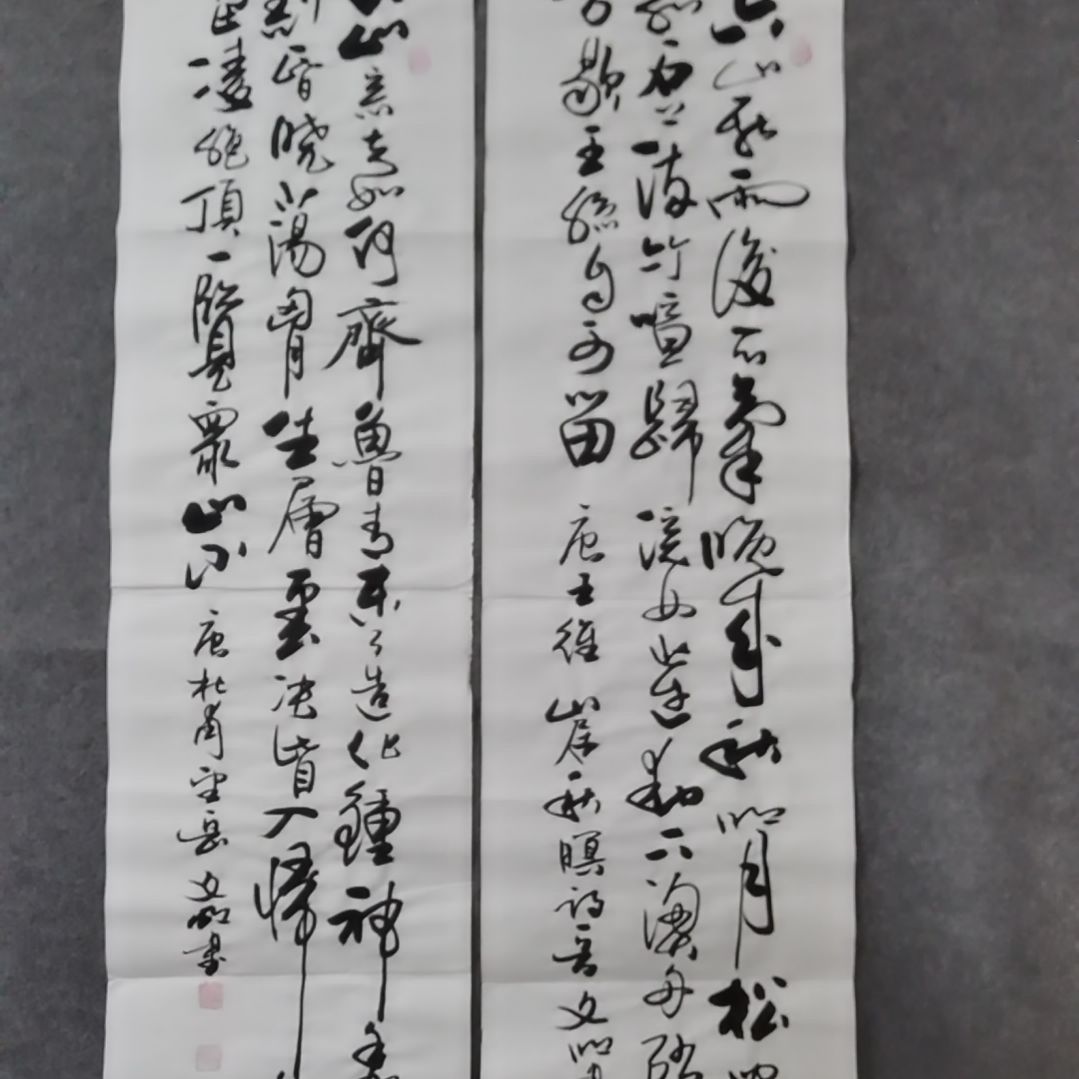 空山新雨後天氣晚來秋明月松
流竹喧歸浣女蓮動下漁舟隨
歇王孫自可留 唐王維 山居秋暝詩 文明
夫如何齊魯青未了造化鍾神秀
割昏曉蕩胸生層雲決眥入歸
當凌絕頂一覽眾山小 唐杜甫望岳 文明書